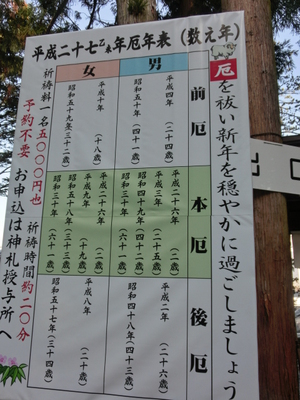 平成二十七乙未年厄年表（数え年）
厄を祓い新年を穏やかに過ごしましょう
男
女
前厄
平成四年（二十四歳）
昭和五十年（四十一歳）
平成十年（十八歳）
昭和五十九年（三十二歳）
本厄
平成二十六年（二歳）
平成三年（二十五歳）
昭和四十九年（四十二歳）
昭和三十年（六十一歳）
平成二十六年（二歳）
平成九年（十九歳）
昭和五十八年（三十三歳）
昭和三十年（六十一歳）
後厄
平成二年（二十六歳）
昭和四十八年（四十三歳）
平成八年（二十歳）
昭和五十七年（三十四歳）
祈祷料一名五〇〇〇円也 祈祷時間約二〇分
予約不要 お申込は神札授与所へ
出口